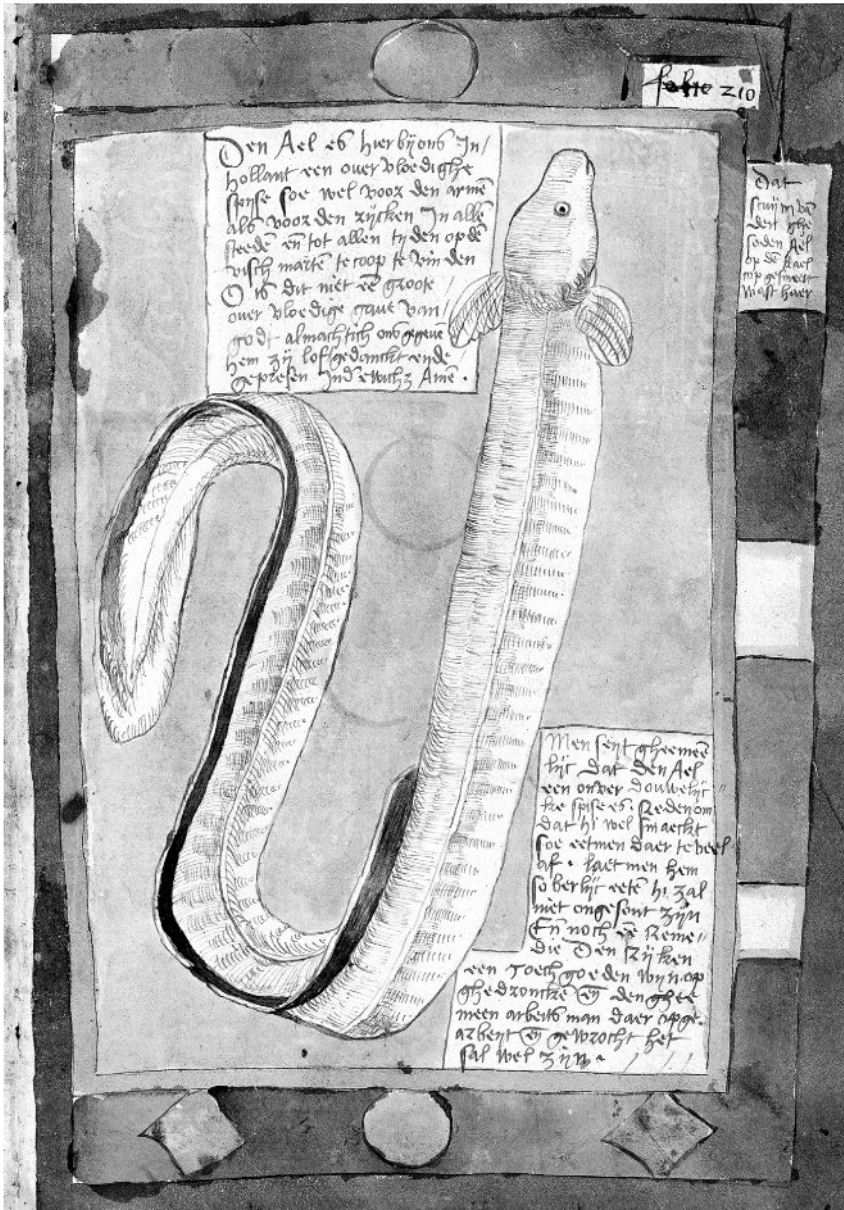 folio 210
Den Ael es hier bÿ ons In/
hollant een over vloedighe
spijse soe wel voor den armē
als voor den rÿcken In allē
steedē eñ tot allen tyden op dē
visch martē te coop te vinden
O is dit niet eē groote/
over vloedige gaue van/
godt almachtich ons gegeuē
hem zÿ lof gedanckt ende
gepresen Ind ewich3 Amē.
Dat
scuÿm vā
den ghe
soden Ael
op dē kael
cop gesmeert
wast haer
Men seÿt gheemeē
lÿc dat den Ael
een onver douwelÿc
ke spise es. Reden om
dat hi wel smaeckt
soe eetmen daer te veel
af. laetmen hem
soberlÿc eetē hi zal
niet ongesont zÿn
Eñ noch eē Reme//
die Den Rÿken
een toech goeden wÿn op
ghedroncke eñ den ghee
meen arbeits man daer op ge.
arbeÿt eñ gewrocht het
sal wel zÿn.